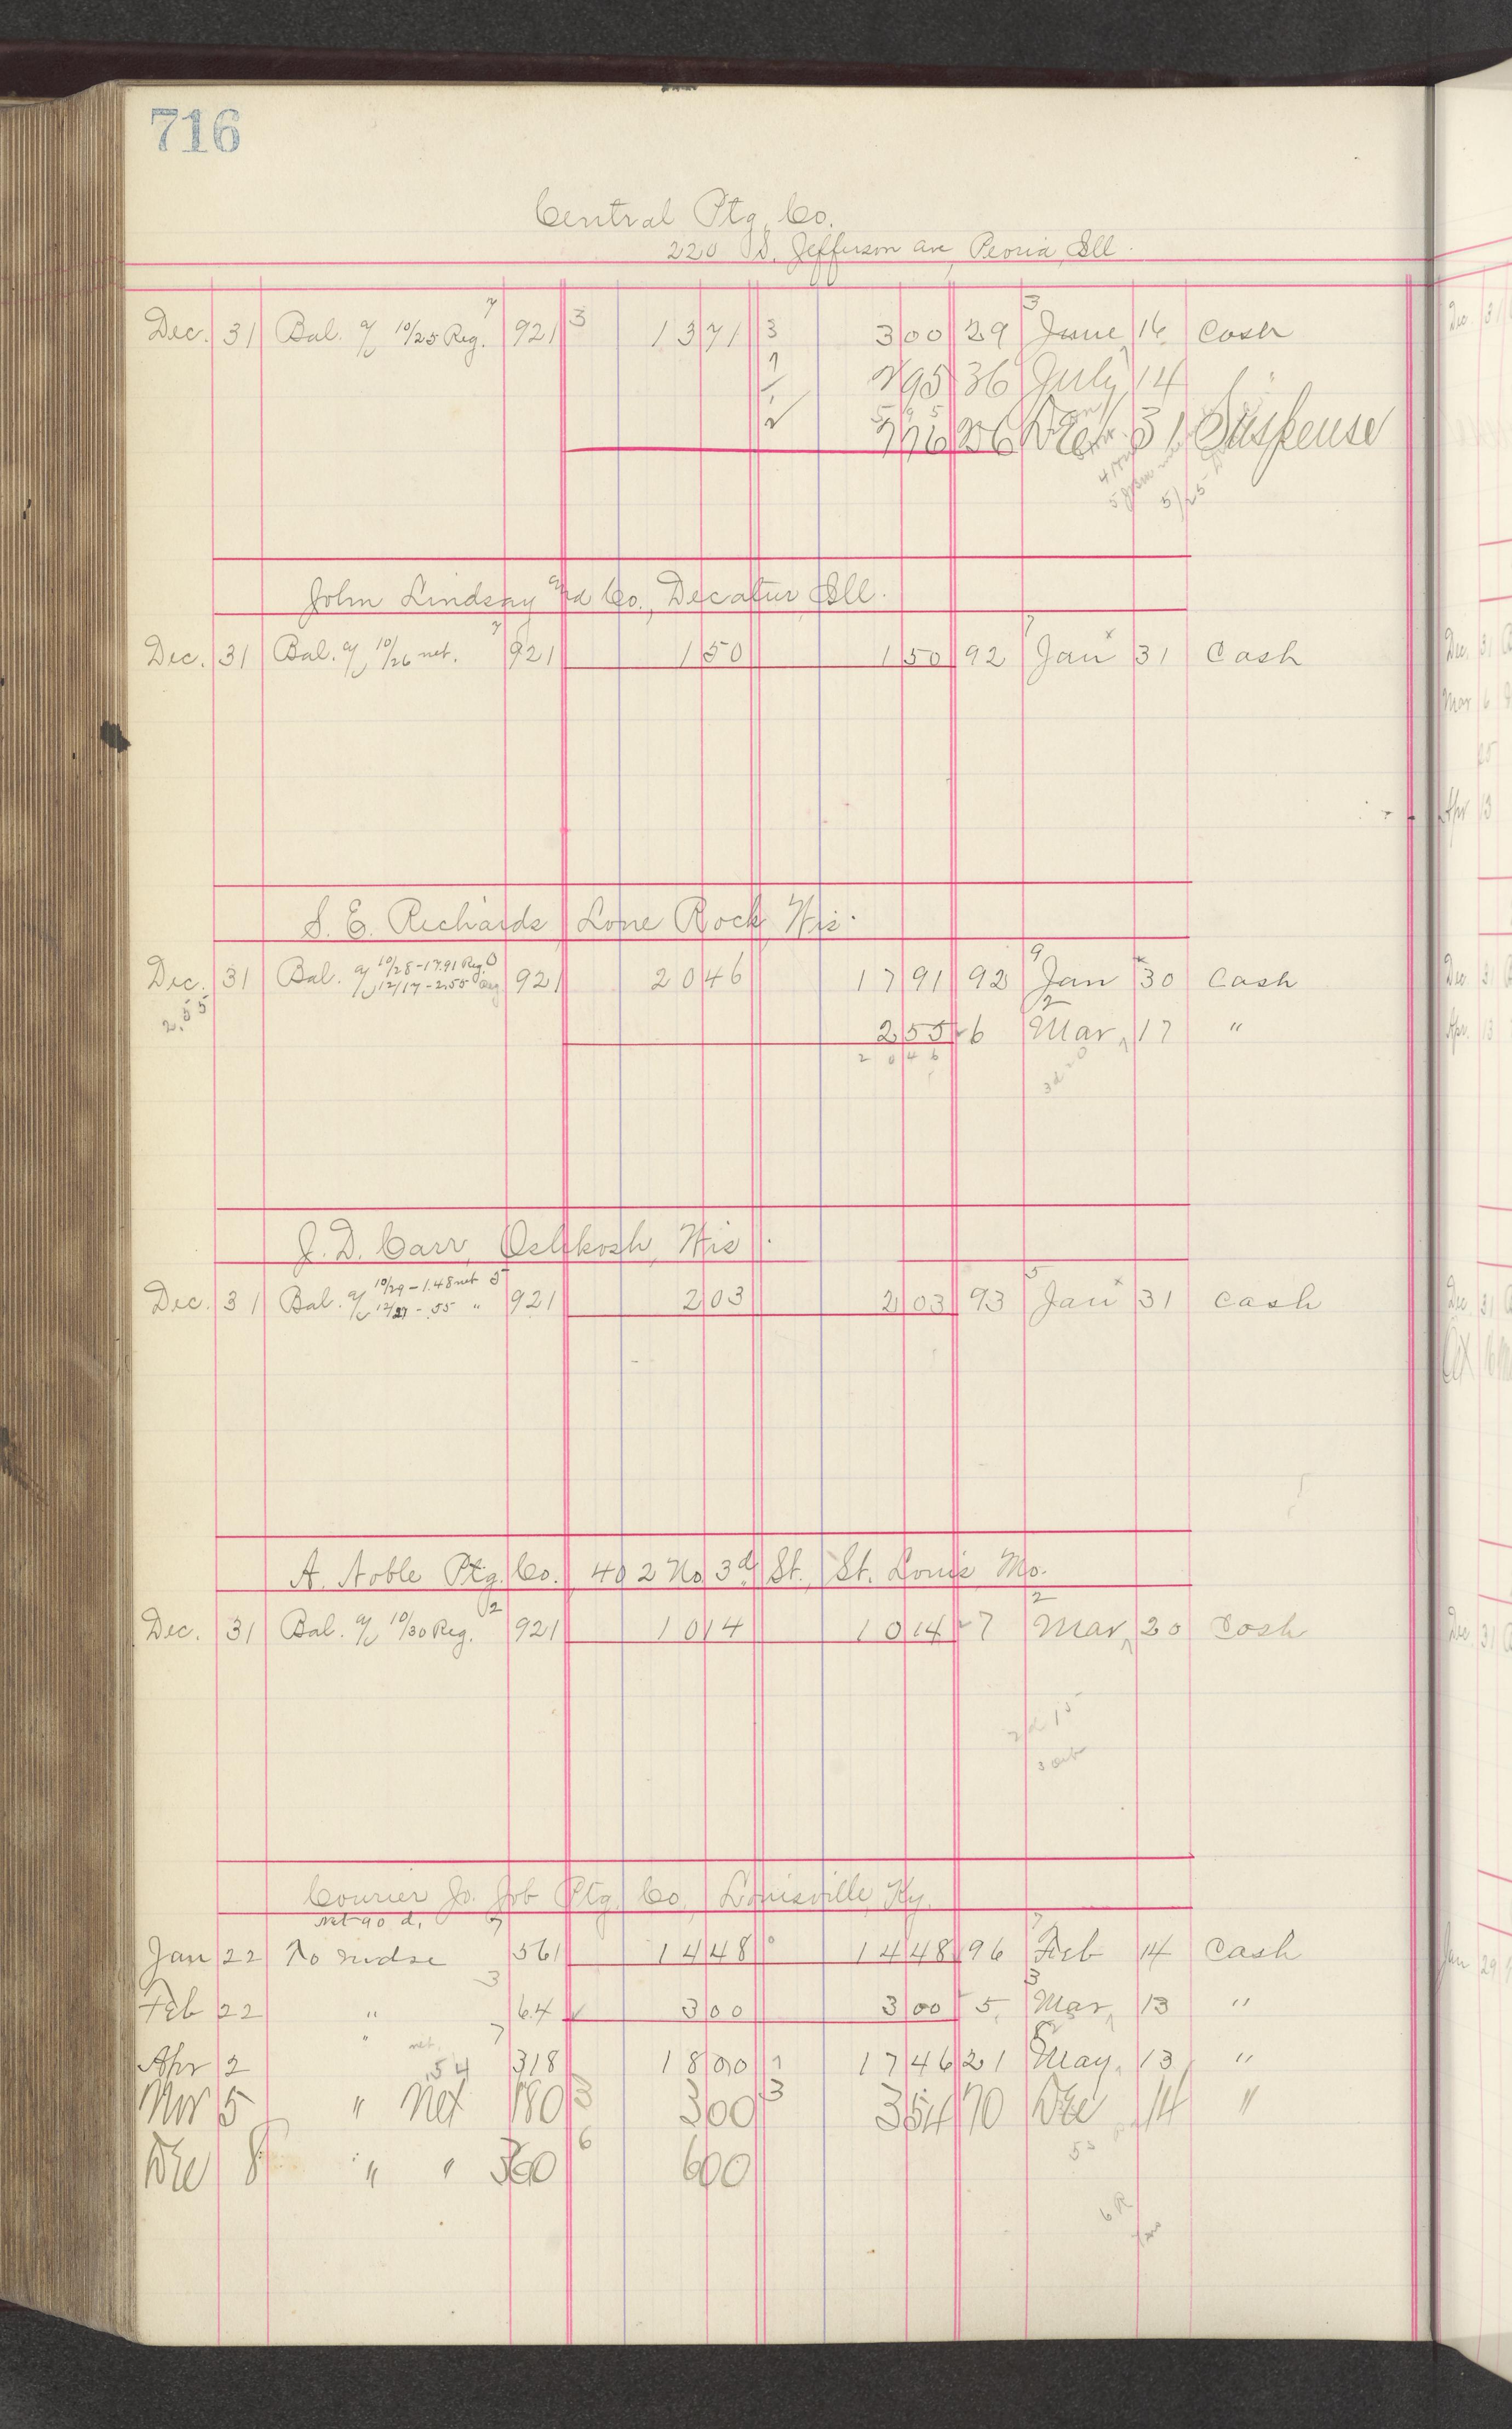 716
Central Ptg. Co.
220 S. Jefferson ave Peoria Ill.
Dec. 31 Bal. a/c 10/25 Reg. 7 921 3 13 71 3 3 00 29 3 June 16 Cash
2 95 36 July 14 "
5 9 5
7 76 26 Dec 31 Suspense
John Lindsay Co., Decatur Ill.
Dec. 31 Bal. a/c 10/26 net. 7 921 1 50 1 50 92 7 Jan 31 Cash
S. E. Richards, Lone Rock, Wis.
Dec. 31 Bal. a/c 10/28 - 17.91 Reg. 921 20 46 17 91 92 9 Jan 30 Cash
12/17 - 2.55
2.55
2 55 6 2 Mar 17 "
20 46
J. D. Carr, Oshkosh, Wis.
Dec. 31 Bal. a/c 10/29 - 1.48 net 5 921 2 03 2 03 93 5 Jan 31 Cash
12/27 - .55 "
A. Noble Ptg. Co. 402 No 3d St., St. Louis Mo.
Dec. 31 Bal. a/c 10/30 Reg. 2 921 10 14 10 14 7 2 Mar 20 Cash
Courier Jo. Job Ptg Co, Louisville, Ky.
net 90 d.
Jan 22 To mdse 7 561 14 48 14 48 96 7 Feb 14 Cash
Feb 22 " 3 64 3 00 3 00 5 3 Mar 13 "
Apr 2 " net .54 7 318 18 00 17 46 21 May 13 "
Nov 5 " Net 180 3 3 00 3 3 54 70 Dec 14 "
Dec 8 " " 360 6 6 00